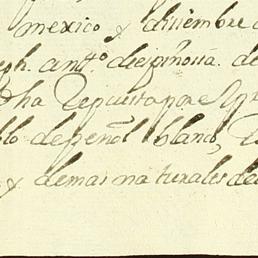 mexico y diziembre
eph. antt.º de espinosa. de
dha Repuesta pore
blo de peñol blanco,
y demas naturales de